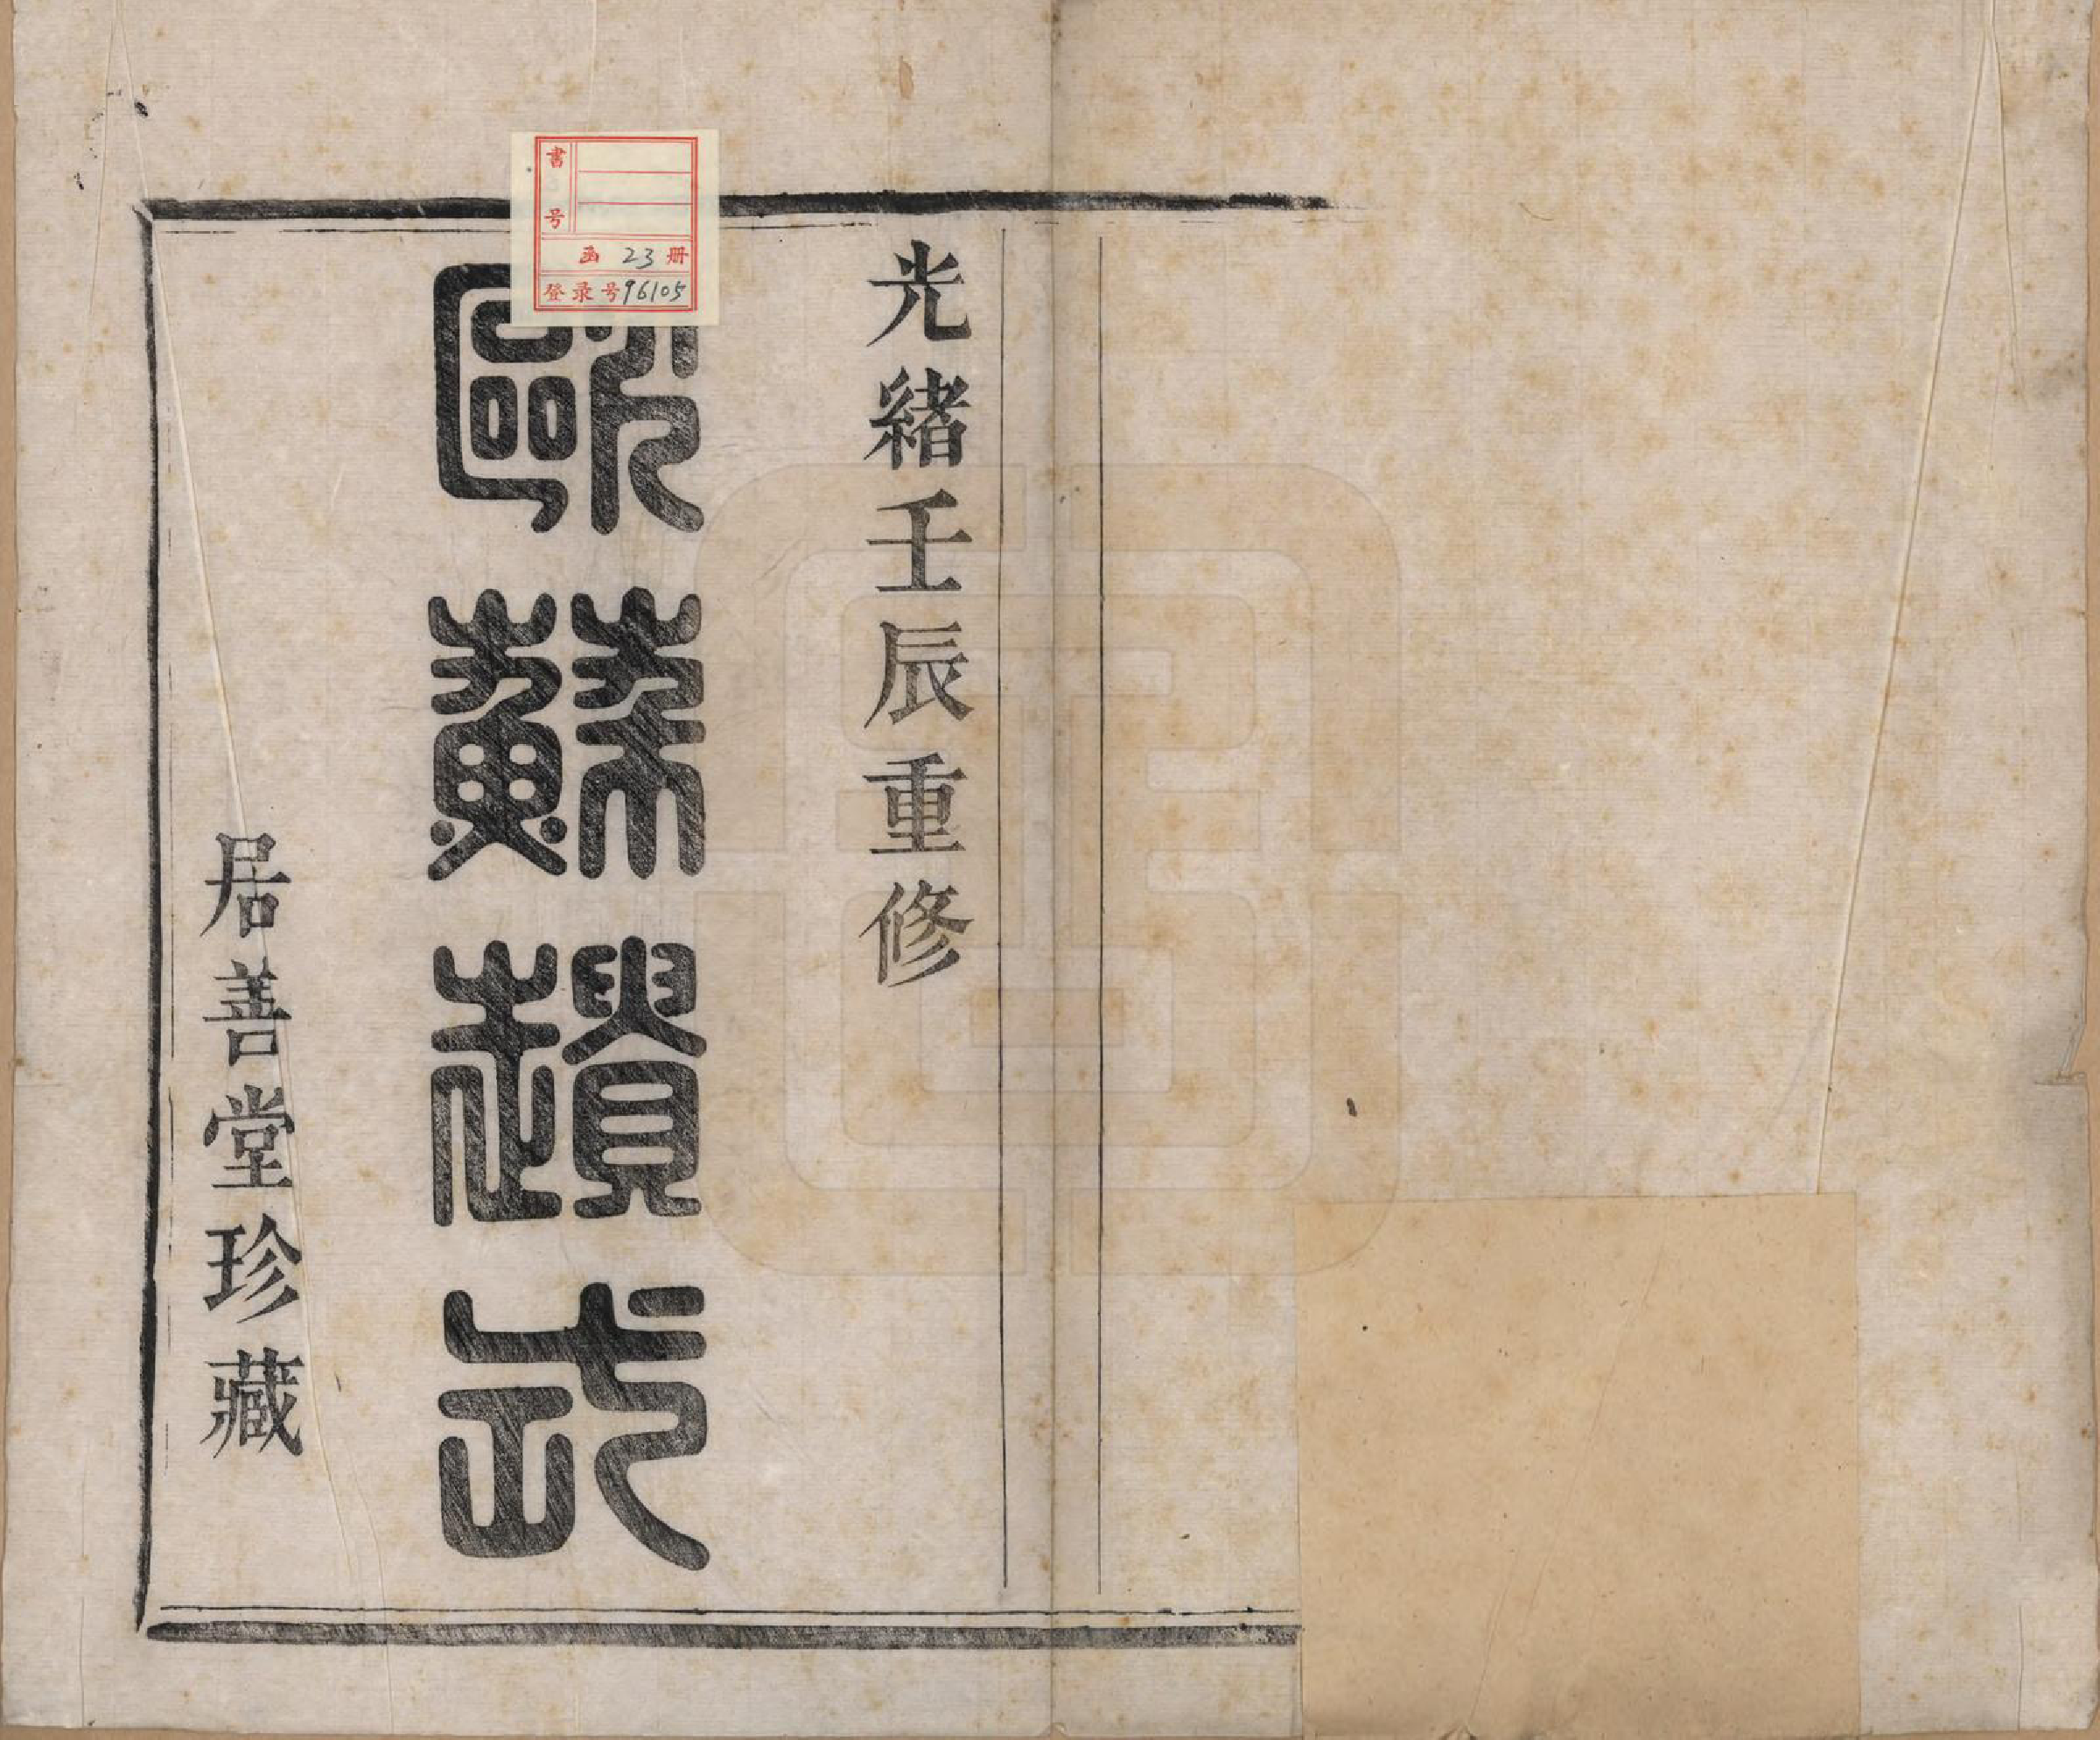 書号
函 23 册
登录号96105
光緒壬辰重修
歐蘇遺式
居善堂珍藏